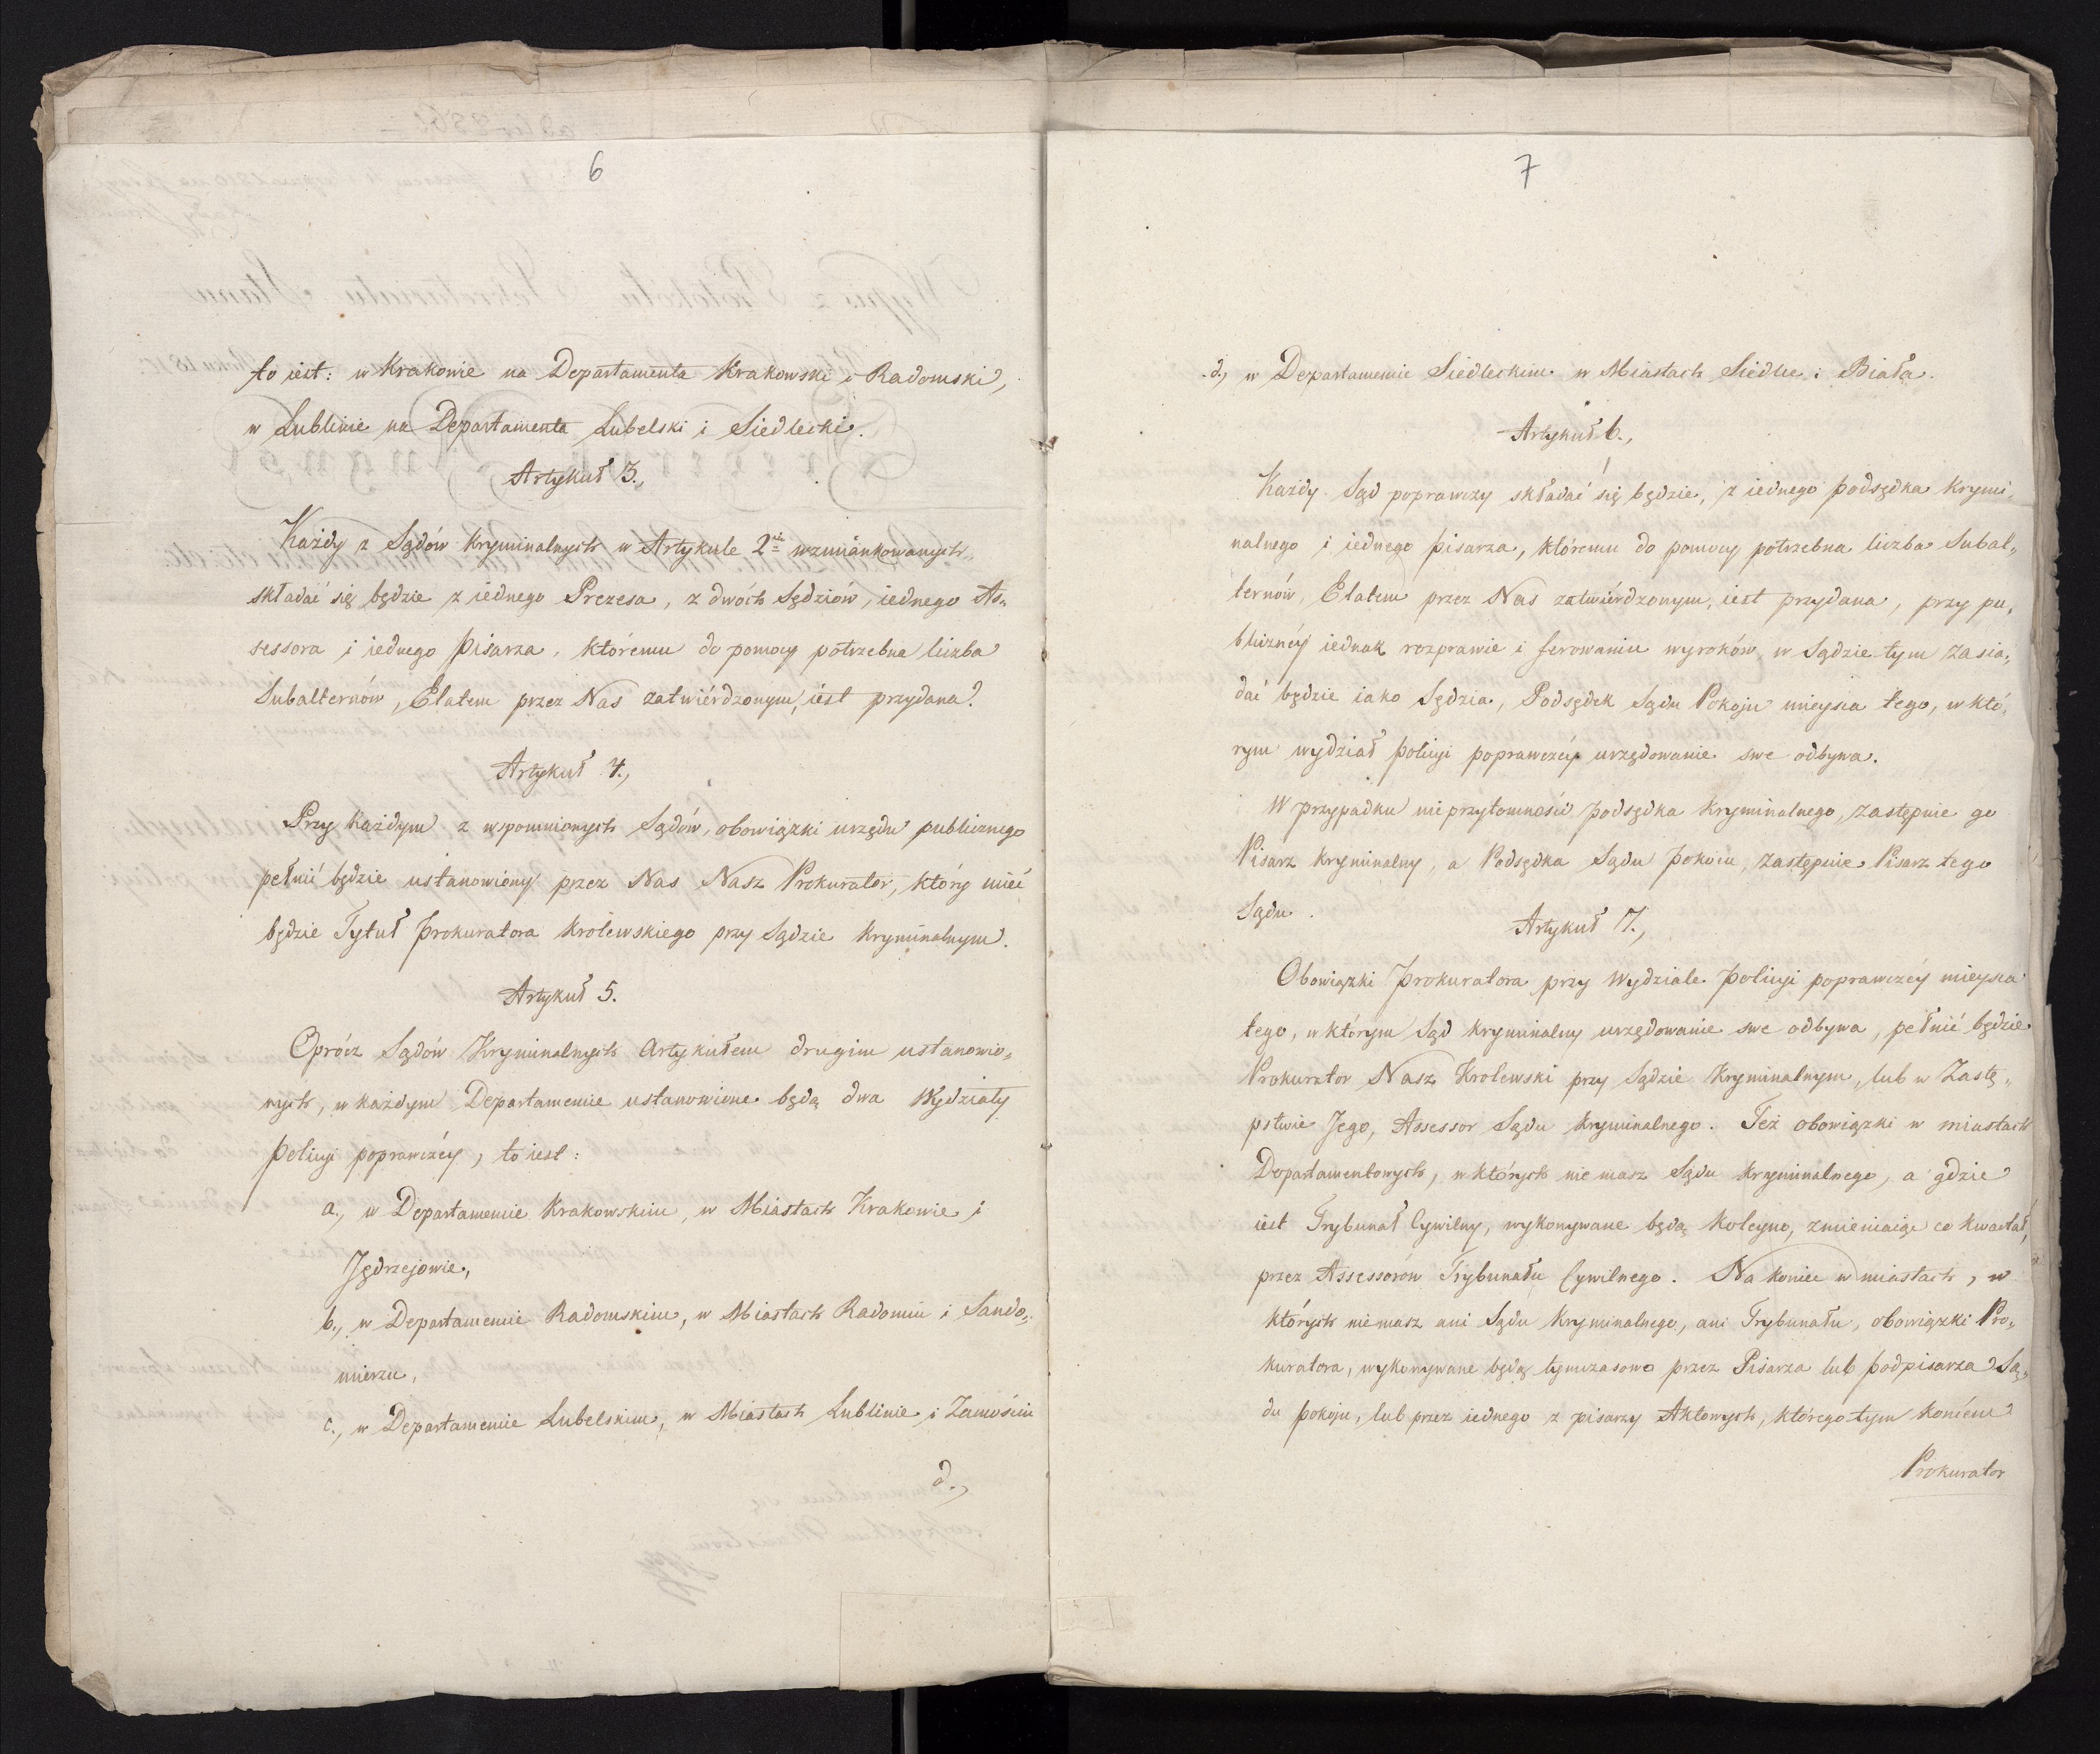 6
to iest: w Krakowie na Departamenta Krakowski i Radomski,
w Lublinie na Departamenta Lubelski i Siedlecki.
Artykuł 3.,
Każdy z Sądów Kryminalnych w Artykule 2im wzmiankowanych,
składać się będzie z iednego Prezesa, z dwóch Sędziów, iednego As„
sessora i iednego Pisarza, któremu do pomocy potrzebna liczba
Subalternów, Etatem przez Nas zatwierdzonym, iest przydana.
Artykuł 4.,
Przy każdym z wspomnionych Sądów, obowiązki urzędu publicznego
pełnić będzie ustanowiony przez Nas Nasz Prokurator, który mieć
będzie Tytuł Prokuratora Królewskiego przy Sądzie Kryminalnym.
Artykuł 5.
Oprócz Sądów Kryminalnych Artykułem drugim ustanowio„
nych, w każdym Departamencie ustanowione będą dwa Wydziały
Policyi poprawczéy, to iest:
a., w Departamencie Krakowskim, w Miastach Krakowie i
Jędrzejowie,
b., w Departamencie Radomskim, w Miastach Radomiu i Sando„
mierzu,
c., w Departamencie Lubelskim, w Miastach Lublinie i Zamościu
d.,
7
d., w Departamencie Siedleckim w Miastach Siedlce i Biała.
Artykuł 6.,
Każdy Sąd poprawczy składać się będzie, z iednego Podsędka Krymi„
nalnego i iednego Pisarza, któremu do pomocy potrzebna liczba Subal„
ternów, Etatem przez Nas zatwierdzonym, iest przydana, przy pu„
blicznéy iednak rozprawie i ferowaniu wyroków w Sądzie tym zasia„
dać będzie iako Sędzia, Podsędek Sądu Pokoju mieysca tego, w któ„
rym wydział Policyi poprawczéy urzędowanie swe odbywa.
W przypadku nieprzytomności Podsędka Kryminalnego, zastępuie go
Pisarz Kryminalny, a Podsędka Sądu Pokoiu, zastępuie Pisarz tego
Sądu.
Artykuł 7.,
Obowiązki Prokuratora przy Wydziale Policyi poprawczéy mieysca
tego, w którym Sąd Kryminalny urzędowanie swe odbywa, pełnić będzie
Prokurator Nasz Królewski przy Sądzie Kryminalnym, lub w Zastę„
pstwie Jego, Assessor Sądu Kryminalnego. Też obowiązki w miastach
Departamentowych, w których nie masz Sądu Kryminalnego, a gdzie
iest Trybunał Cywilny, wykonywane będą koleyno, zmieniaiąc co kwartał,
przez Assessorów Trybunału Cywilnego. Na koniec w miastach, w
których nie masz ani Sądu Kryminalnego, ani Trybunału, obowiązki Pro„
kuratora, wykonywane będą tymczasowo przez Pisarza lub Podpisarza Są„
du Pokoju, lub przez iednego z pisarzy Aktowych, którego tym końcem
Prokurator